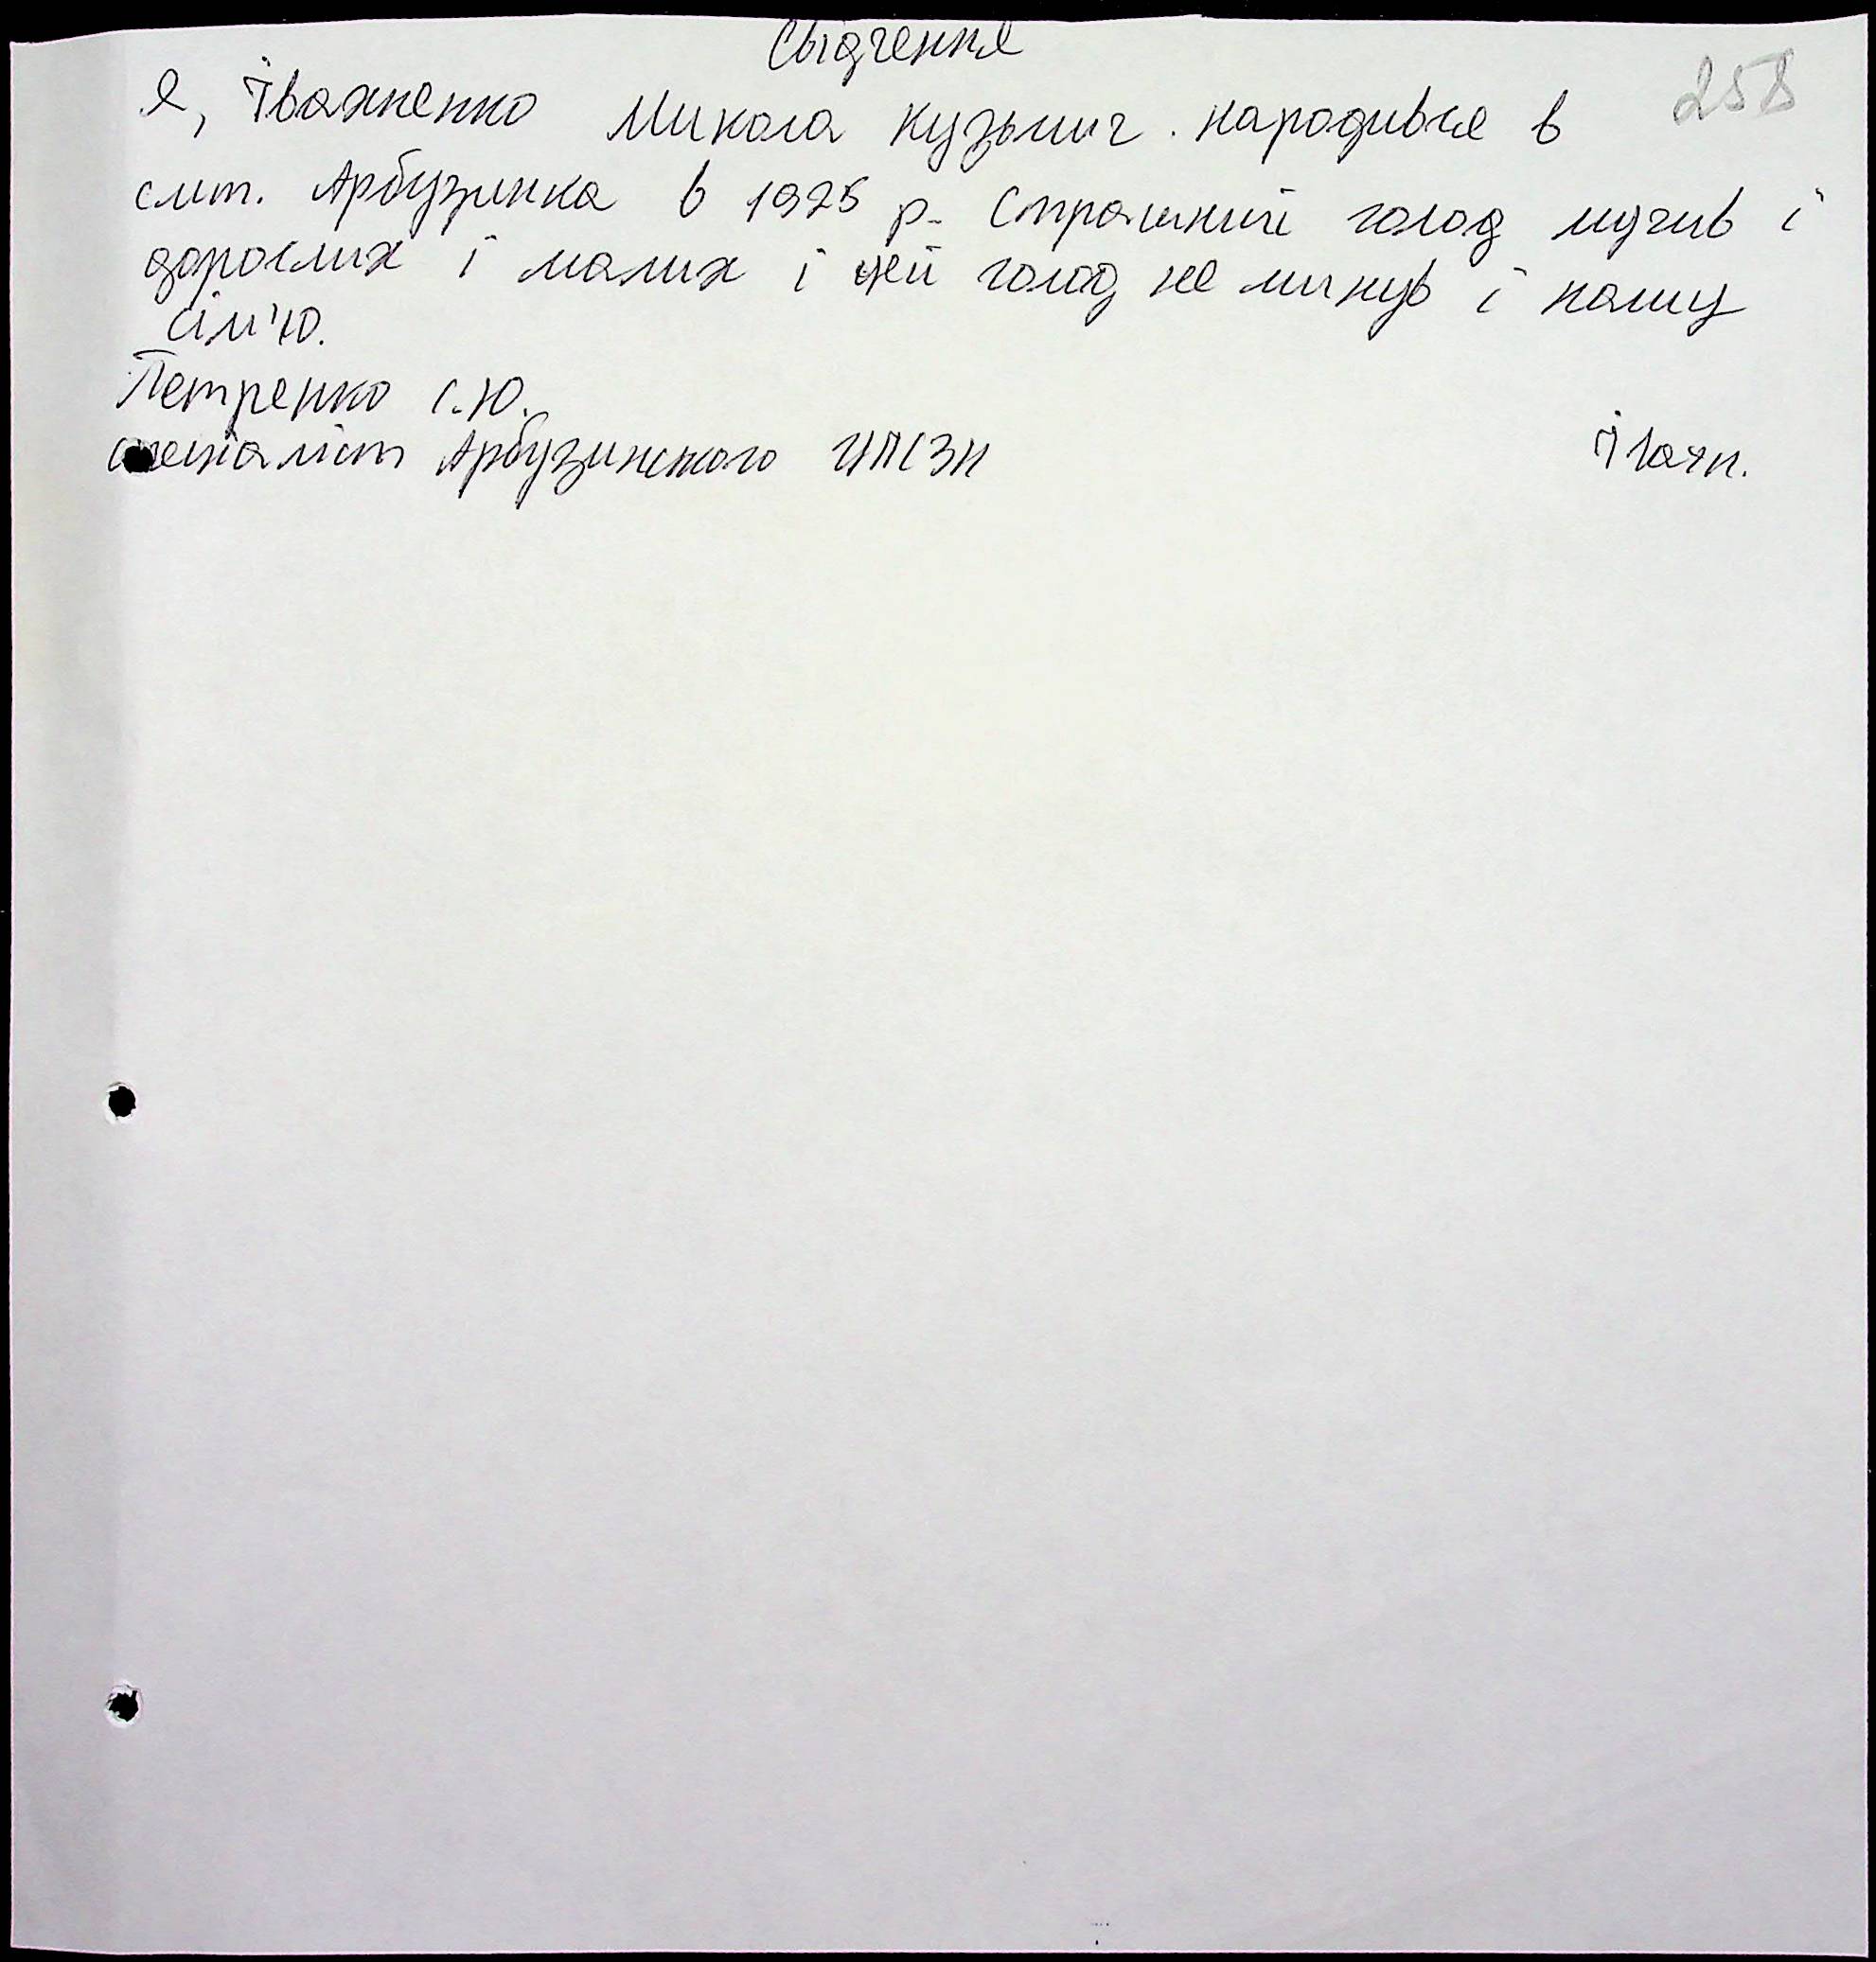 Свідчення
258
Я, Іваненко Микола Кузьмич. народився в
смт. Арбузинка в 1925 р. Страшний голод мучив і
дорослих і малих і цей голод не минув і нашу
сім'ю.
Петренко С.Ю.
спеціаліст Арбузинського ЦПСЗН